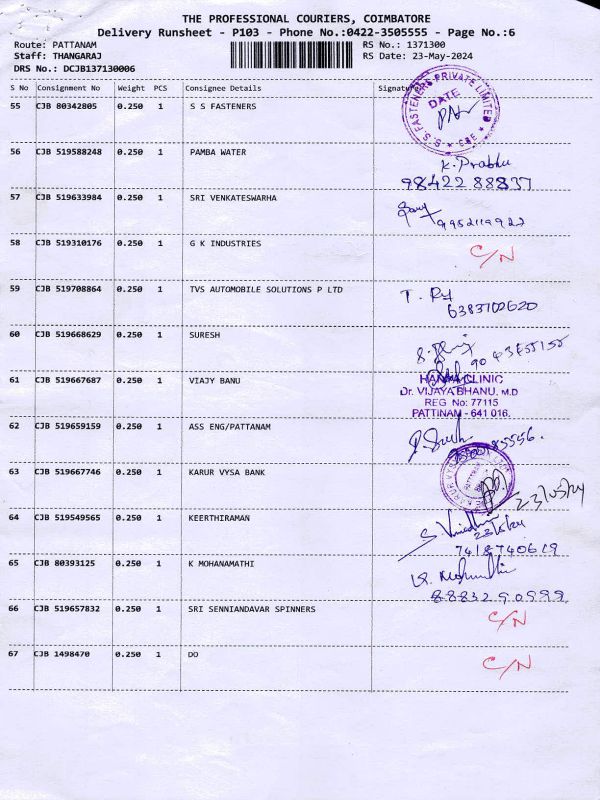 THE PROFESSIONAL COURIERS, COIMBATORE
Delivery Runsheet - P103 - Phone No.:0422-3505555 - Page No.:6
Route: PATTANAM RS No.: 1371300
Staff: THANGARAJ RS Date: 23-May-2024
DRS No.: DCJB137130006
S No Consignment No Weight PCS Consignee Details Signature
55 CJB 80342805 0.250 1 S S FASTENERS
S. S. FASTENERS PRIVATE LIMITED
DATE
CBE
56 CJB 519588248 0.250 1 PAMBA WATER K. Prabhu
98422 88837
57 CJB 519633984 0.250 1 SRI VENKATESWARHA
58 CJB 519310176 0.250 1 G K INDUSTRIES C/N
59 CJB 519708864 0.250 1 TVS AUTOMOBILE SOLUTIONS P LTD
6383702620
60 CJB 519668629 0.250 1 SURESH
61 CJB 519667687 0.250 1 VIAJY BANU CLINIC
Dr. VIJAYA BHANU, M.D
REG No: 77115
PATTINAM - 641 016.
62 CJB 519659159 0.250 1 ASS ENG/PATTANAM
63 CJB 519667746 0.250 1 KARUR VYSA BANK
23/05/24
64 CJB 519549565 0.250 1 KEERTHIRAMAN
23/5/24
7418740619
65 CJB 80393125 0.250 1 K MOHANAMATHI
8883290999
66 CJB 519657832 0.250 1 SRI SENNIANDAVAR SPINNERS C/N
67 CJB 1498470 0.250 1 DO C/N